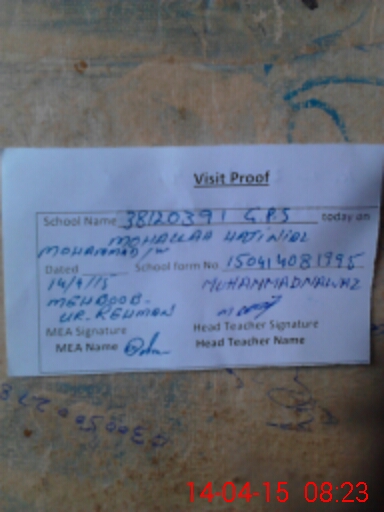 Visit Proof
School Name 38120391 G.P.S today on
MOHALLAA HATINIAZ
MOHAMMAD
Dated School form No. 150414081995
14/4/15 MUHAMMADNAWAZ
MEHBOOB-
UR-REHMAN
MEA Signature Head Teacher Signature
MEA Name Head Teacher Name
0300500278
14-04-15 08:23